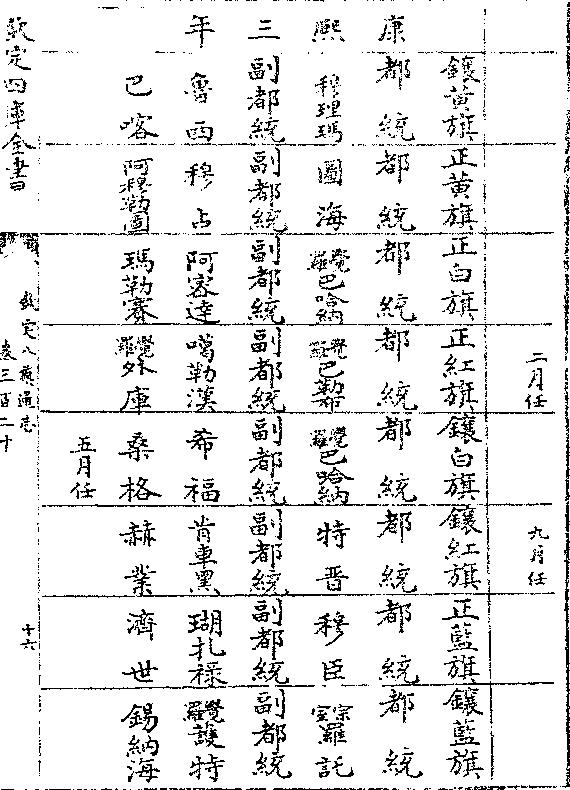 康熙三年
鑲黃旗
都統
穆理瑪
副都統
魯西
巴喀
正黃旗
都統
圖海
副都統
穆占
阿穆勒圖
正白旗
都統
覺羅巴哈納
副都統
阿密達
瑪勒賽
二月任
正紅旗
都統
覺羅巴勒
副都統
噶勒漢
覺羅外庫
鑲白旗
都統
覺羅巴哈納
副都統
希福
桑格
五月任
九月任
鑲紅旗
都統
特晉
副都統
肯車黑
赫業
正藍旗
都統
穆臣
副都統
瑚扎祿
濟世
鑲藍旗
都統
宗室羅託
副都統
覺羅護特
錫納海
欽定四庫全書
欽定八旗通志
卷三百二十
十六